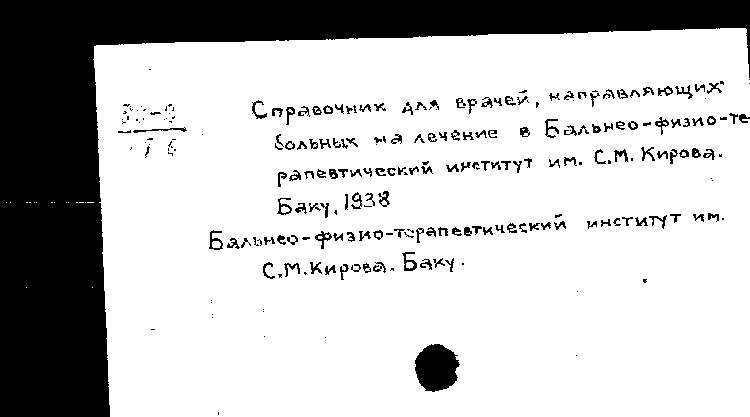 Справочник для врачей, направляющих
больных на лечение в Бальнео-физио-те-
рапевтический институт им. С.М. Кирова.
Баку, 1938
Бальнео-физио-терапевтический институт им.
С.М. Кирова. Баку.